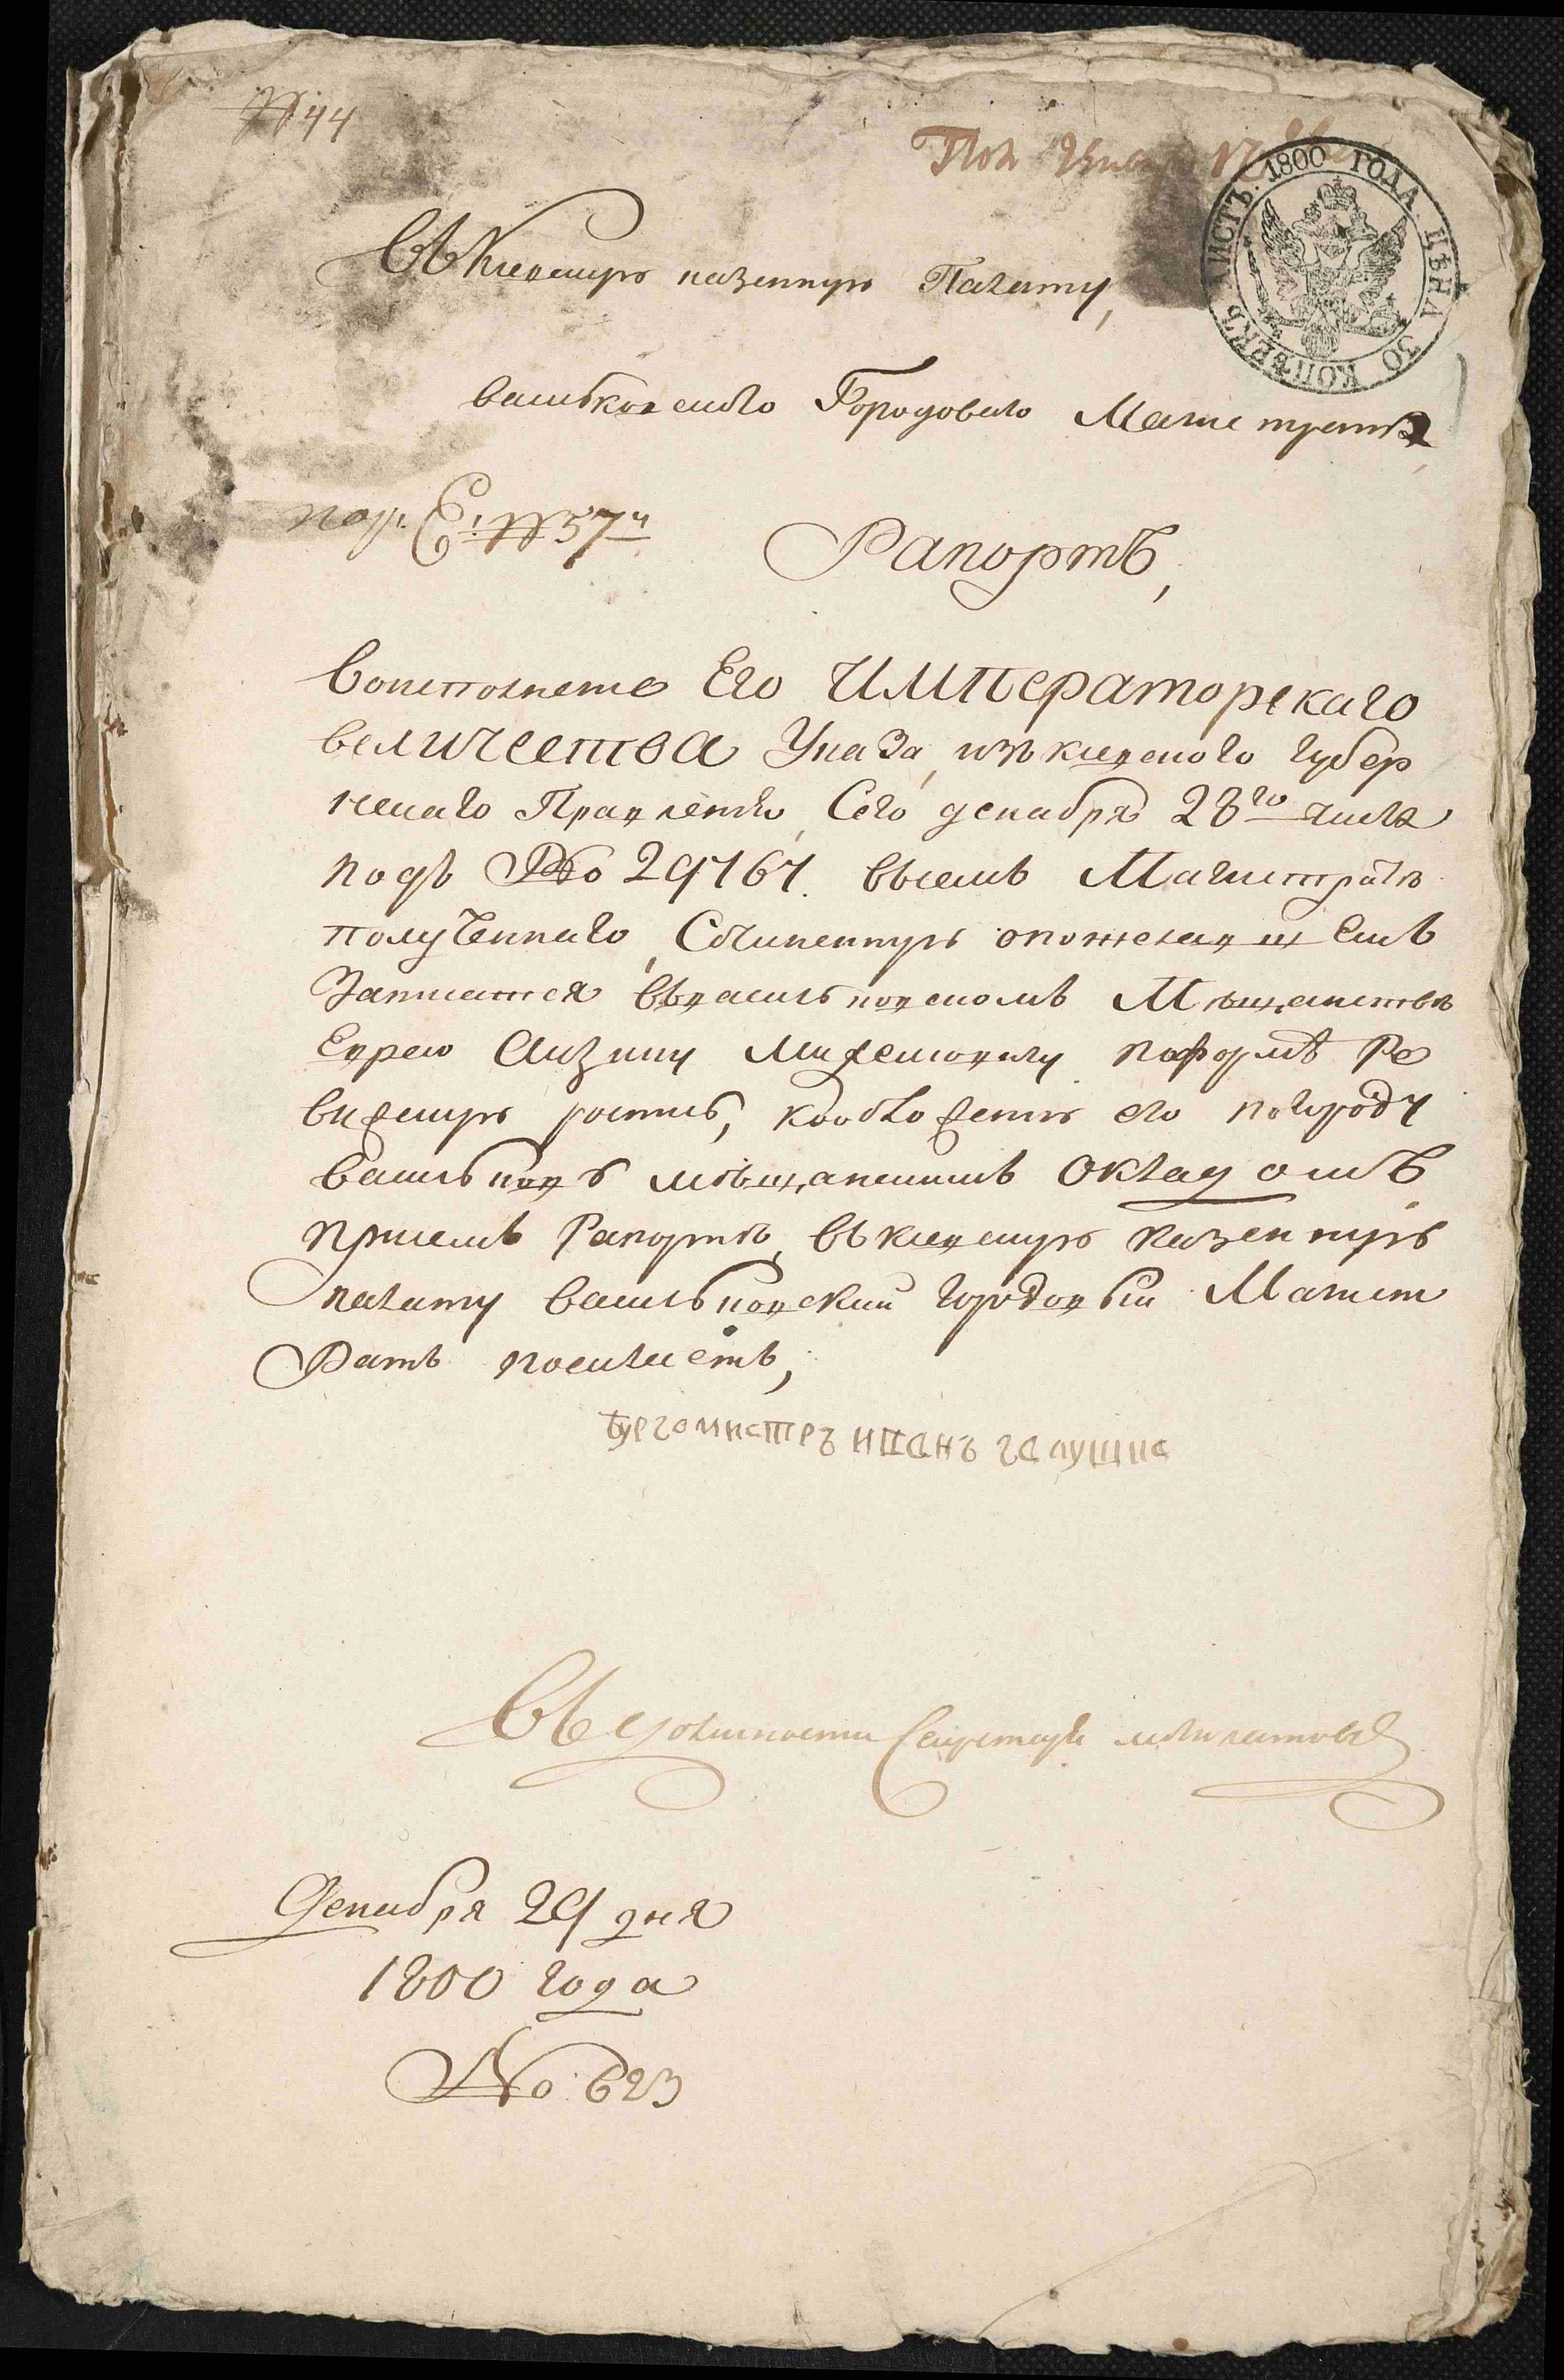 № 44
Пол
ЛИСТЪ. 1800 ГОДА ЦѢНА 30 КОПѢЕКЪ
Въ Киевскую казенную Палату,
васильковского Городоваго Магистрата
№ 57
Рапортъ,
Воисполнение Его Императорскаго
величества Указа, изъ киевского губер
нскаго Правления, Сего декабря 28го числа
подъ No 29767. въсемъ Магистратѣ
полученнаго, Сочиненную опожелающемъ
Записатся въвасильковскомъ Мѣщанствѣ
Еврею Айзику поформѣ Ре
визскую роспись, кообложению его погороду
Василькову мѣщанскимъ Окладомъ
присемъ Рапортѣ, въ киевскую казенную
палату васильковский городовый Магист
Ратъ посилаетъ,
Бургомистръ иванъ галушка
Въ должности Секретаря
Декабря 29 дня
1800 года
No: 623